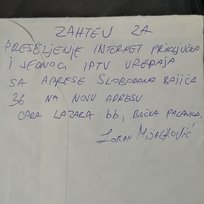 ZAHTEV ZA
PRESELJENJE INTERNET PRIKLJUČKA
I JEDNOG IPTV UREĐAJA
SA ADRESE SLOBODANA RAJIĆA
36 NA NOVU ADRESU
CARA LAZARA bb, BAČKA PALANKA,
ZORAN